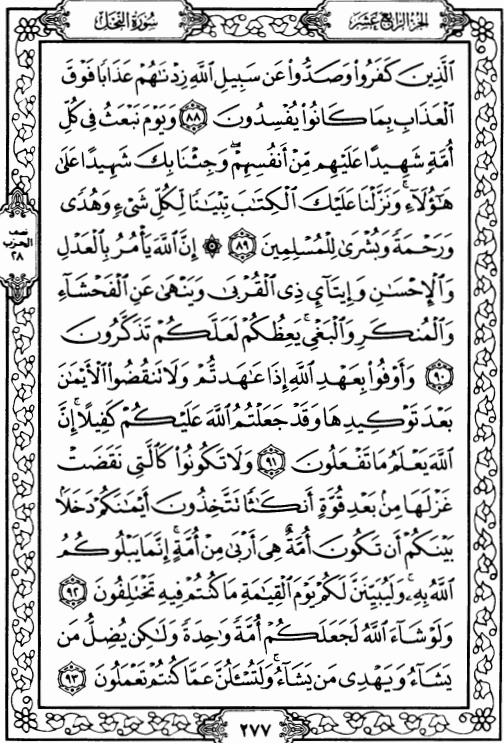 سُورَةُ النَّحْلِ
الجُزءُ الرَّابِعَ عَشَرَ
الَّذِينَ كَفَرُوا۟ وَصَدُّوا۟ عَن سَبِيلِ اللَّهِ زِدْنَٰهُمْ عَذَابًا فَوْقَ
الْعَذَابِ بِمَا كَانُوا۟ يُفْسِدُونَ ٨٨ وَيَوْمَ نَبْعَثُ فِى كُلِّ
أُمَّةٍ شَهِيدًا عَلَيْهِم مِّنْ أَنفُسِهِمْ ۖ وَجِئْنَا بِكَ شَهِيدًا عَلَىٰ
هَٰٓؤُلَآءِ ۚ وَنَزَّلْنَا عَلَيْكَ الْكِتَٰبَ تِبْيَٰنًا لِّكُلِّ شَىْءٍ وَهُدًى
وَرَحْمَةً وَبُشْرَىٰ لِلْمُسْلِمِينَ ٨٩ ۞ إِنَّ اللَّهَ يَأْمُرُ بِالْعَدْلِ
وَالْإِحْسَٰنِ وَإِيتَآئِ ذِى الْقُرْبَىٰ وَيَنْهَىٰ عَنِ الْفَحْشَآءِ
وَالْمُنكَرِ وَالْبَغْىِ ۚ يَعِظُكُمْ لَعَلَّكُمْ تَذَكَّرُونَ
٩٠ وَأَوْفُوا۟ بِعَهْدِ اللَّهِ إِذَا عَٰهَدتُّمْ وَلَا تَنقُضُوا۟ الْأَيْمَٰنَ
بَعْدَ تَوْكِيدِهَا وَقَدْ جَعَلْتُمُ اللَّهَ عَلَيْكُمْ كَفِيلًا ۚ إِنَّ
اللَّهَ يَعْلَمُ مَا تَفْعَلُونَ ٩١ وَلَا تَكُونُوا۟ كَالَّتِى نَقَضَتْ
غَزْلَهَا مِنۢ بَعْدِ قُوَّةٍ أَنكَٰثًا تَتَّخِذُونَ أَيْمَٰنَكُمْ دَخَلًۢا
بَيْنَكُمْ أَن تَكُونَ أُمَّةٌ هِىَ أَرْبَىٰ مِنْ أُمَّةٍ ۚ إِنَّمَا يَبْلُوكُمُ
اللَّهُ بِهِۦ ۚ وَلَيُبَيِّنَنَّ لَكُمْ يَوْمَ الْقِيَٰمَةِ مَا كُنتُمْ فِيهِ تَخْتَلِفُونَ ٩٢
وَلَوْ شَآءَ اللَّهُ لَجَعَلَكُمْ أُمَّةً وَٰحِدَةً وَلَٰكِن يُضِلُّ مَن
يَشَآءُ وَيَهْدِى مَن يَشَآءُ ۚ وَلَتُسْـَٔلُنَّ عَمَّا كُنتُمْ تَعْمَلُونَ ٩٣
نصف
الحزب
٢٨
٢٧٧